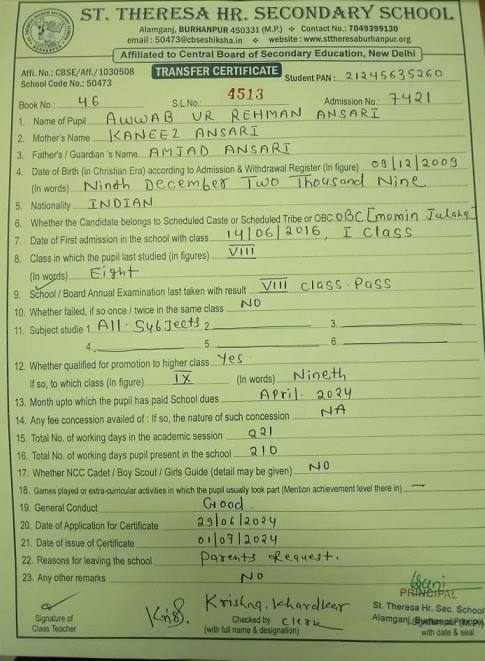 ST. THERESA HR. SECONDARY SCHOOL
Alamganj, BURHANPUR 450331 (M.P.) ✧ Contact No.: 7049399130
email : 50473@cbseshiksha.in ✧ website : www.sttheresaburhanpur.org
Affiliated to Central Board of Secondary Education, New Delhi
Affi. No.: CBSE/Aff./1030508 TRANSFER CERTIFICATE Student PAN : 21245635260
School Code No.: 50473
Book No.: 46 S.L.No.: 4513 Admission No.: 7421
1. Name of Pupil AWWAB UR REHMAN ANSARI
2. Mother's Name KANEEZ ANSARI
3. Father's / Guardian 's Name AMJAD ANSARI
4. Date of Birth (in Christian Era) according to Admission & Withdrawal Register (In figure) 09/12/2009
(In words) Ninth December Two Thousand Nine
5. Nationality INDIAN
6. Whether the Candidate belongs to Scheduled Caste or Scheduled Tribe or OBC OBC [Momin Julaha]
7. Date of First admission in the school with class 14/06/2016, I Class
8. Class in which the pupil last studied (in figures) VIII
(In words) Eight
9. School / Board Annual Examination last taken with result VIII Class Pass
10. Whether failed, if so once / twice in the same class NO
11. Subject studie 1. All Subjects 2. 3.
4. 5. 6.
12. Whether qualified for promotion to higher class Yes.
If so, to which class (In figure) IX (In words) Nineth
13. Month upto which the pupil has paid School dues April. 2024
14. Any fee concession availed of : If so, the nature of such concession NA
15. Total No. of working days in the academic session 221
16. Total No. of working days pupil present in the school 210
17. Whether NCC Cadet / Boy Scout / Girls Guide (detail may be given) NO
18. Games played or extra-curricular activities in which the pupil usually took part (Mention achievement level there in) —
19. General Conduct Good
20. Date of Application for Certificate 29/06/2024
21. Date of issue of Certificate 01/07/2024
22. Reasons for leaving the school Parents Request.
23. Any other remarks NO
PRINCIPAL
Krishna. Khardker
St. Theresa Hr. Sec. School
Signature of Class Teacher
Checked by Clerk
(with full name & designation)
Alamganj,
with date & seal